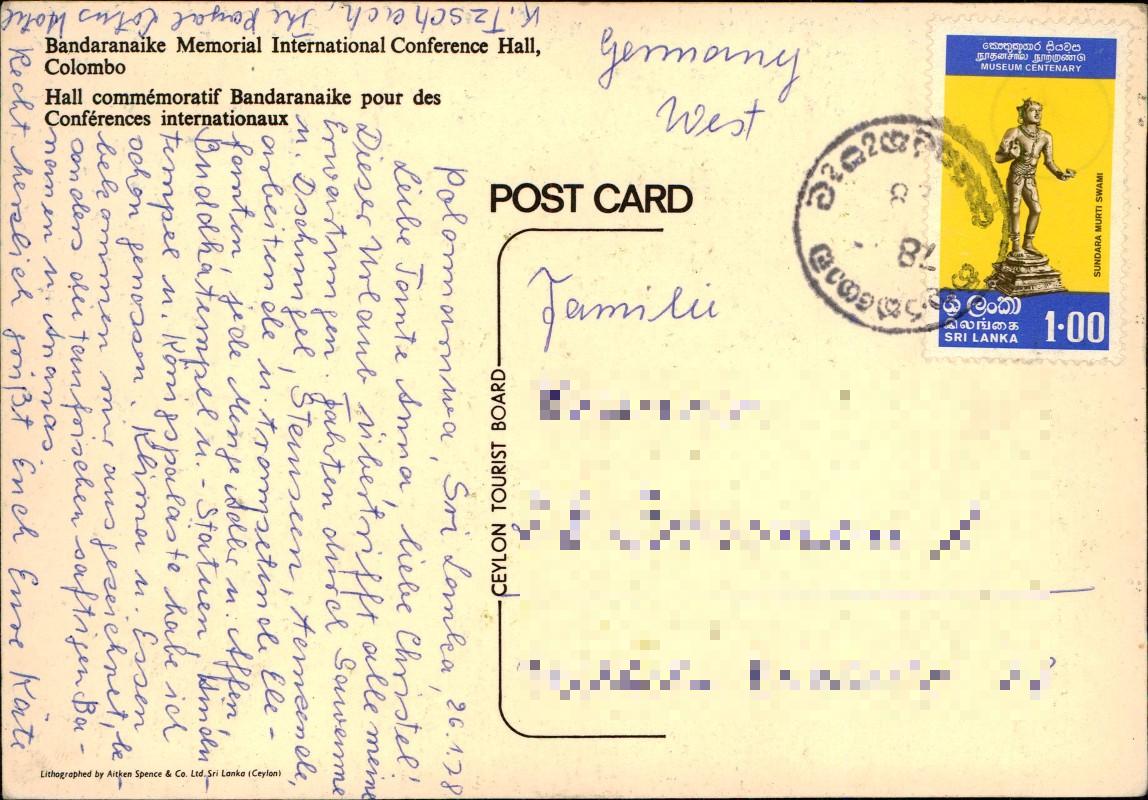 K. Tzscheich, The Royal Lotus Hotel
Bandaranaike Memorial International Conference Hall,
Colombo
Hall commémoratif Bandaranaike pour des
Conférences internationaux
Polonnaruwa, Sri Lanka, 26.1.78
Liebe Tante Anna, liebe Christel!
Dieser Urlaub übertrifft alle meine
Erwartungen. Fahrten durch Savanne
u. Dschungel, Teeernten, Tausende,
arbeitende u. trompetende Ele-
fanten, jede Menge Adler u. Affen,
Buddhatempel u. -Statuen, Hindu-
tempel u. Königspaläste habe ich
schon genossen. Klima u. Essen
bekommen mir ausgezeichnet, be-
sonders die taufrischen saftigen Ba-
nanen u. Ananas.
Recht herzlich grüßt Euch Eure Käte
POST CARD
CEYLON TOURIST BOARD
Germany
West
Familie
කෞතුකාගාර සියවස
நூதனசாலை நூற்றாண்டு
MUSEUM CENTENARY
SUNDARA MURTI SWAMI
ශ්‍රී ලංකා
இலங்கை
SRI LANKA
1·00
78
Lithographed by Aitken Spence & Co. Ltd. Sri Lanka (Ceylon)